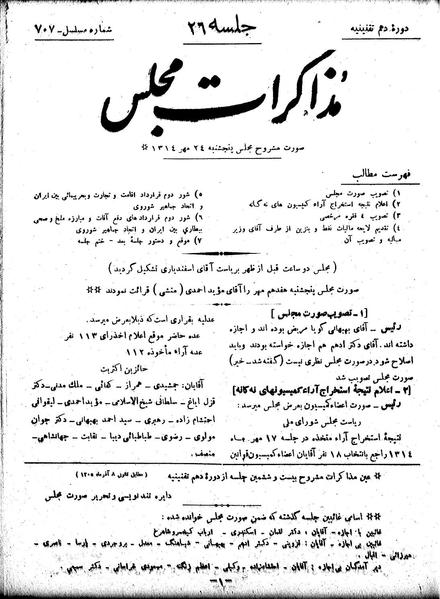 دورۀ دهم تقنینیه
جلسه ۲۶
شماره مسلسل - ۷۰۷
مذاکرات مجلس
صورت مشروح مجلس پنجشنبه ۲۴ مهر ۱۳۱۴ *
فهرست مطالب
۱) تصویب صورت مجلس
۲) اعلام نتیجه استخراج آراء کمیسیون های نه گانه
۳) تصویب ۴ فقره مرخصی
۴) تقدیم لایحه مالیات نفط و بنزین از طرف آقای وزیر
مالیه و تصویب آن
۵) شور دوم قرارداد اقامت و تجارت و بحرپیمائی بین ایران
و اتحاد جماهیر شوروی
۶) شور دوم قراردادهای دفع آفات و مبارزه ملخ و صحی
بیطاری بین ایران و اتحاد جماهیر شوروی
۷) موقع و دستور جلسه بعد - ختم جلسه
(مجلس دو ساعت قبل از ظهر بریاست آقای اسفندیاری تشکیل گردید)
صورت مجلس پنجشنبه هفدهم مهر را آقای مؤید احمدی (منشی) قرائت نمودند **
[۱ - تصویب صورت مجلس]
رئیس - آقای بهبهانی گویا مریض بوده اند و اجازه
داشته اند. آقای دکتر ادهم هم اجازه خواسته بودند و باید
اصلاح شود. در صورت مجلس نظری نیست (گفته شد - خیر)
صورت مجلس تصویب شد
[۲ - اعلام نتیجۀ استخراج آراء کمیسیونهای نه گانه]
رئیس - صورت اعضاء کمیسیون بعرض مجلس میرسد:
ریاست مجلس شورای ملی
نتیجۀ استخراج آراء متخذه در جلسه ۱۷ مهر ماه
۱۳۱۴ راجع بانتخاب ۱۸ نفر آقایان اعضاء کمیسیون قوانین
عدلیه بقراری است که ذیلا بعرض میرسد.
عده حاضر موقع اعلام اخذ رای ۱۱۳ نفر
عده آراء مأخوذه ۱۱۲
حائزین اکثریت
آقایان: جمشیدی - همراز - کفائی - ملک مدنی - دکتر
قزل ایاغ - سلطانی شیخ الاسلامی - مؤید احمدی - لیقوانی
احتشام زاده - رهبری - سید احمد بهبهانی - دکتر جوان
مولوی - رضوی - طباطبائی دیبا - نقابت - جهانشاهی -
منصف.
* عین مذاکرات مشروح بیست و ششمین جلسه از دورۀ دهم تقنینیه
(مطابق قانون ۸ آذر ماه ۱۳۰۵)
دایره تندنویسی و تحریر صورت مجلس
** اسامی غائبین جلسه گذشته که ضمن صورت مجلس خوانده شده:
غائبین با اجازه - آقایان: دکتر لقمان - اسکندری - ارباب کیخسرو شاهرخ
غائبین بی اجازه - آقایان: قزوینی - دکتر ادهم - بهبهانی - شباهنگ - معدل - بروجردی - پارسا - ناصری -
میرزائی - اقبال.
دیر آمدگان بی اجازه: آقایان - اعتصام زاده - وکیلی - اعظم زنگنه - مسعودی خراسانی - دکتر سمیعی.
-۱-